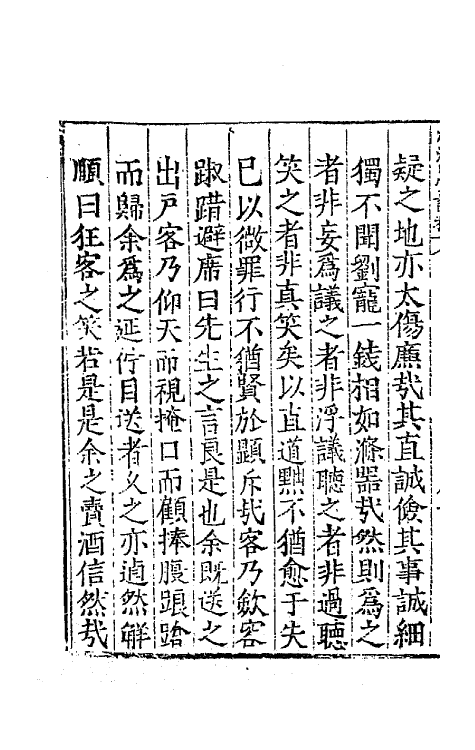 疑之地亦太傷廉哉其直誠儉其事誠細
獨不聞劉寵一錢相如滌器哉然則為之
者非妄為議之者非浮議聽之者非過聽
笑之者非真笑矣以直道黜不猶愈于失
巳以微罪行不猶賢於顯斥哉客乃歛容
踧踖避席曰先生之言良是也余既送之
出戶客乃仰天而視掩口而顧捧腹踉蹌
而歸余為之延佇目送者久之亦逌然解
頤曰狂客之笑若是是余之賣酒信然哉